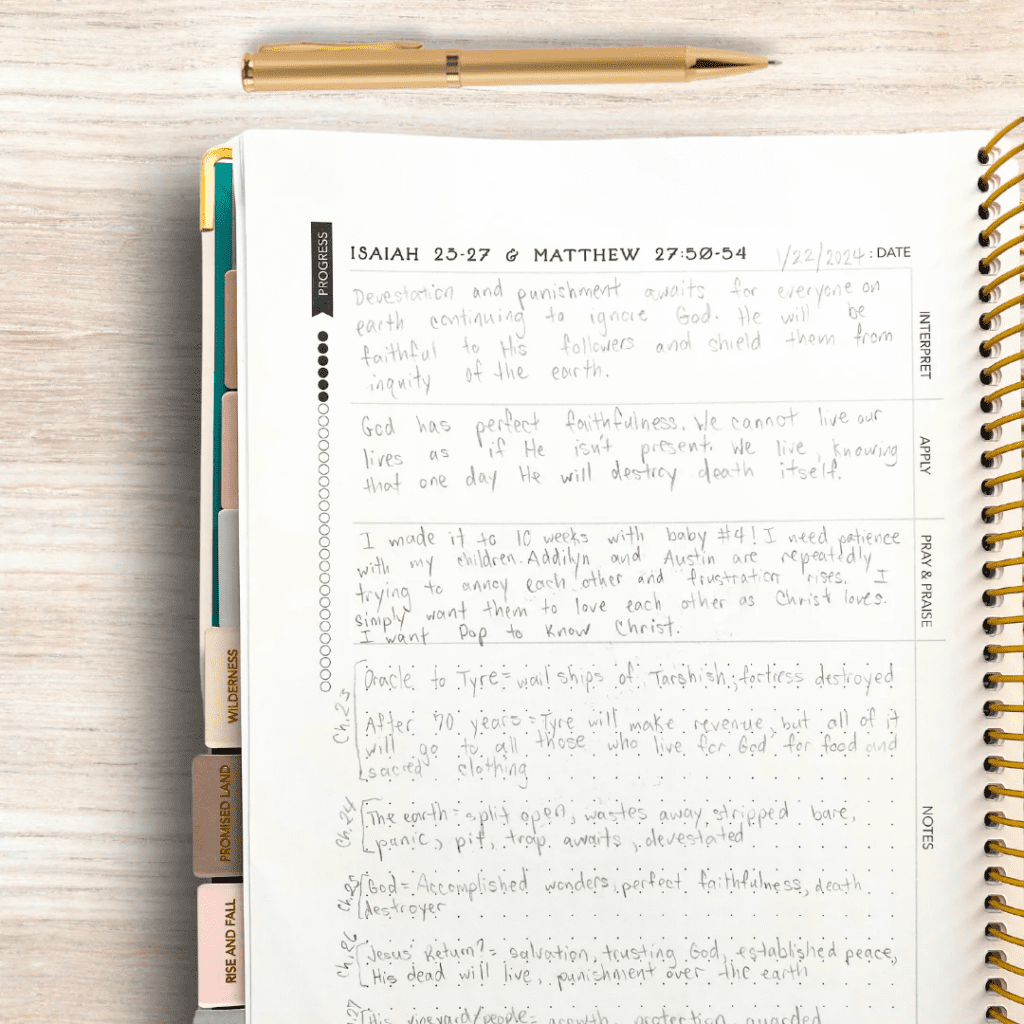 PROGRESS
ISAIAH 23-27 & MATTHEW 27:50-54
1/22/2024 : DATE
Devestation and punishment awaits for everyone on
earth continuing to ignore God. He will be
faithful to His followers and shield them from
inquity of the earth.
INTERPRET
God has perfect faithfulness. We cannot live our
lives as if He isn't present. We live, knowing
that one day He will destroy death itself.
APPLY
I made it to 10 weeks with baby #4! I need patience
with my children. Addilyn and Austin are repeatedly
trying to annoy each other and frustration rises. I
simply want them to love each other as Christ loves.
I want Pop to know Christ.
PRAY & PRAISE
Ch. 23
Oracle to Tyre = wail ships of Tarshish; fortress destroyed
After 70 years = Tyre will make revenue, but all of it
will go to all those who live for God for food and
sacred clothing
Ch. 24
The earth = split open, wastes away, stripped bare,
panic, pit, trap awaits, devestated
NOTES
Ch. 25
God = Accomplished wonders, perfect faithfulness, death
destroyer
Ch. 26
Jesus' Return? = salvation, trusting God, established peace,
His dead will live, punishment over the earth
27
His vineyard/people = growth, protection, guarded
WILDERNESS
PROMISED LAND
RISE AND FALL